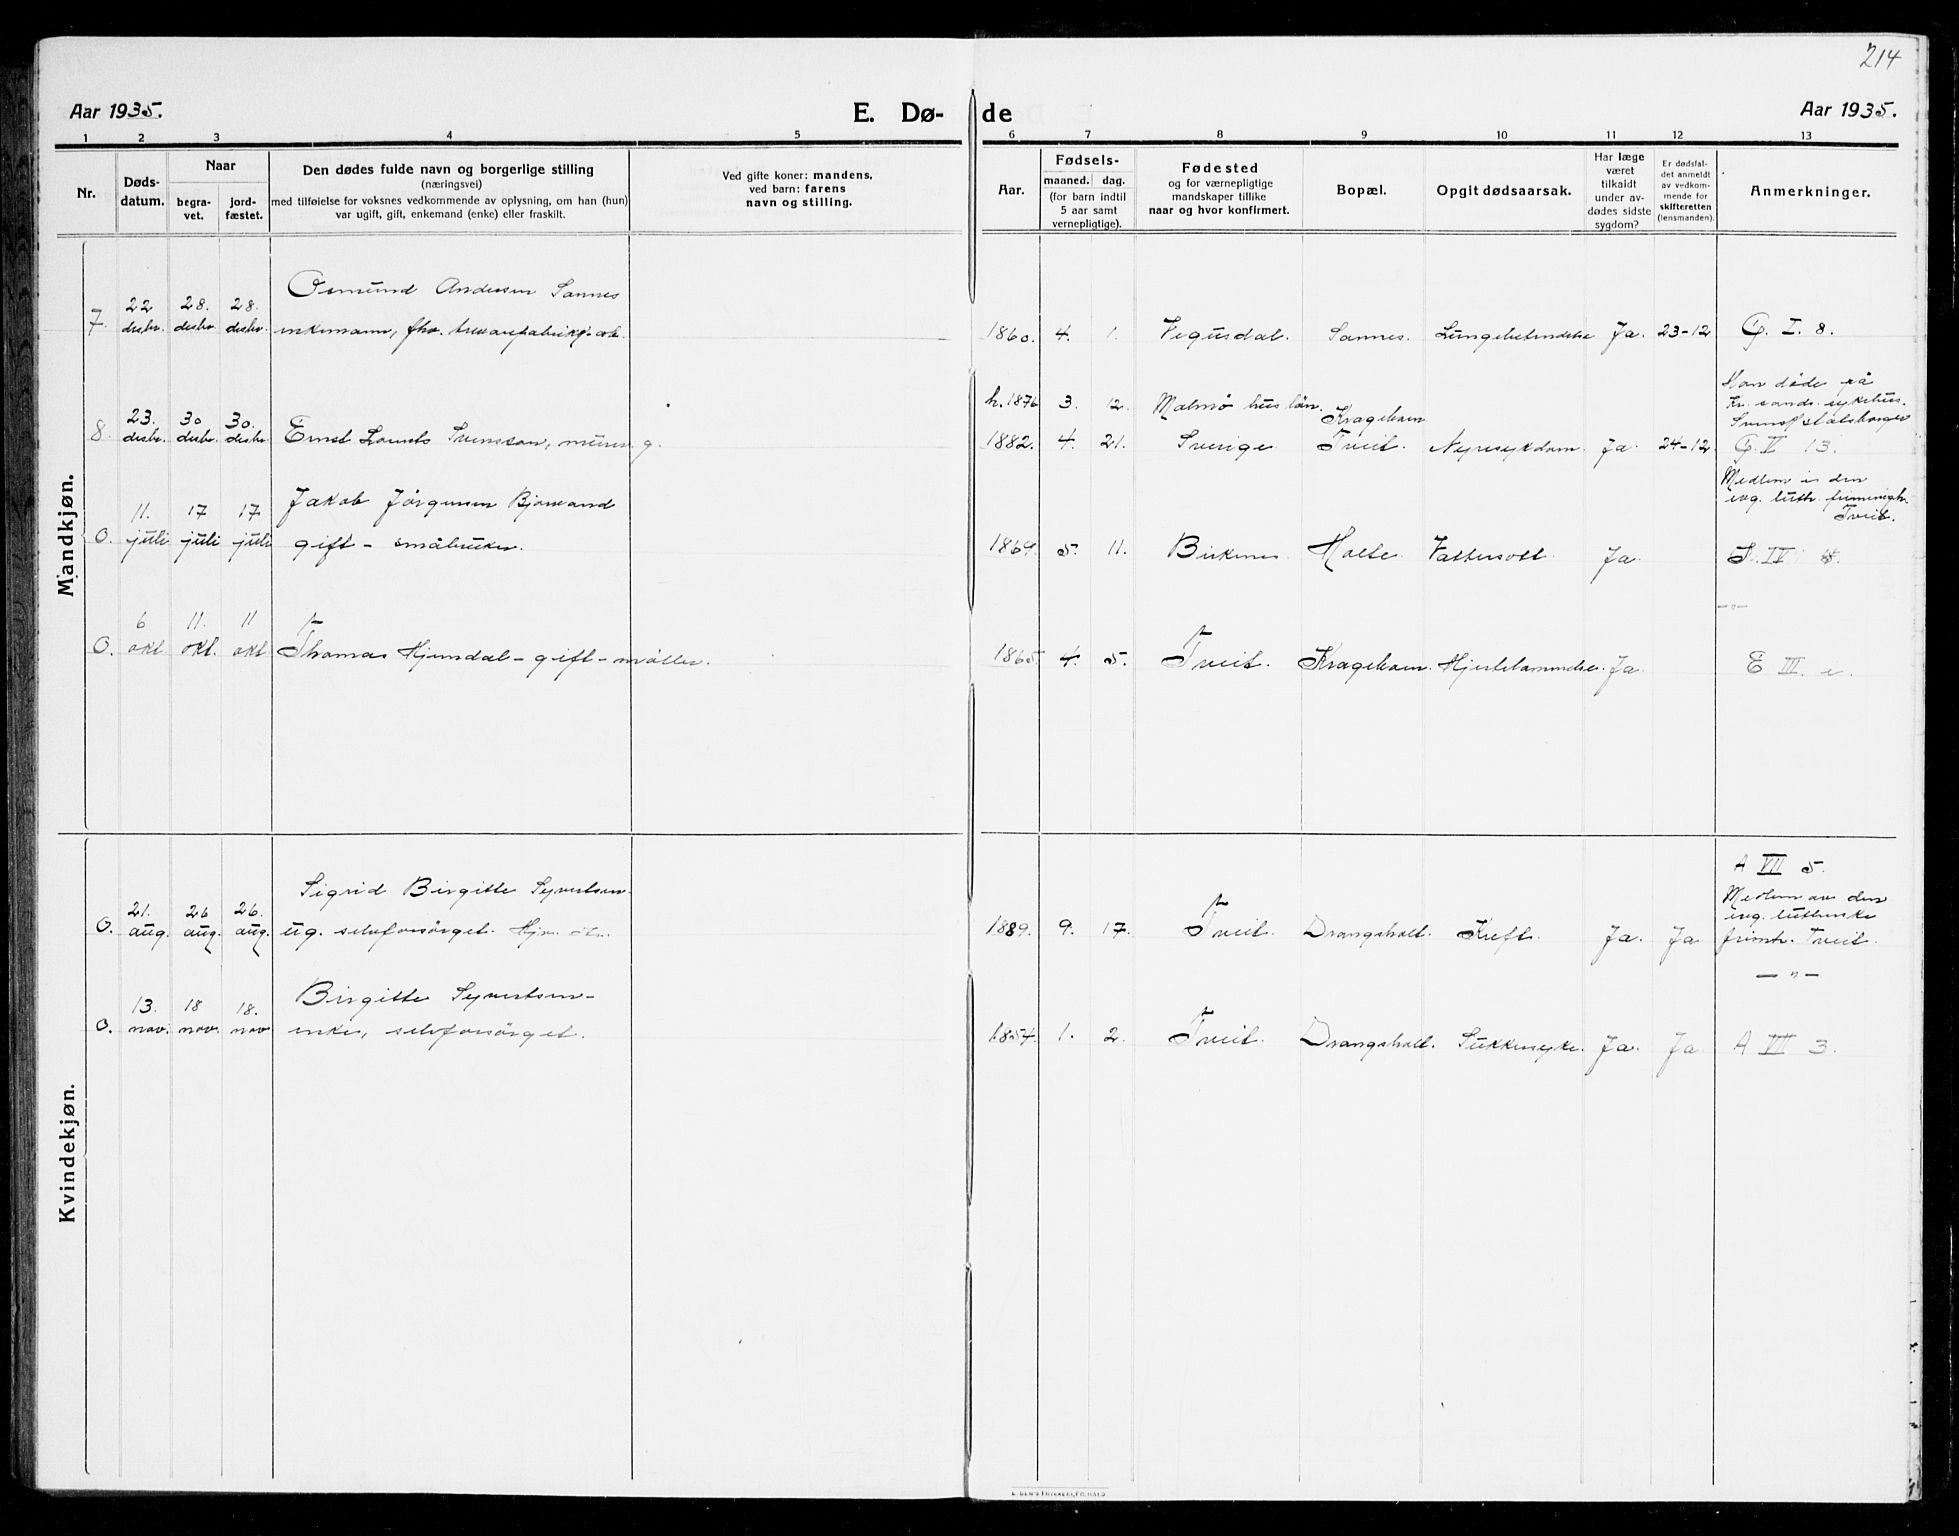 214
Aar 1935.
E. Dø-
de
Aar 1935.
1 2 3 4 5 6 7 8 9 10 11 12 13
Nr.
Døds-
datum.
Naar
begra-
vet.
jord-
fæstet.
Den dødes fulde navn og borgerlige stilling
(næringsvei)
med tilføielse for voksnes vedkommende av oplysning, om han (hun)
var ugift, gift, enkemand (enke) eller fraskilt.
Ved gifte koner: mandens,
ved barn: farens
navn og stilling.
Aar.
Fødsels-
maaned. dag.
(for barn indtil
5 aar samt
vernepligtige).
Fødested
og for værnepligtige
mandskaper tillike
naar og hvor konfirmert.
Bopæl.
Opgit dødsaarsak.
Har læge
været
tilkaldt
under av-
dødes sidste
sygdom?
Er dødsfal-
det anmeldt
av vedkom-
mende for
skifteretten
(lensmanden).
Anmerkninger.
Mandkjøn.
7. 22 desbr. 28. desbr. 28. desbr.
Osmund Andersen Sannes
enkemann, fhv.
1860. 4. 1. Vegusdal. Sannes. Lungebetendelse Ja. 23-12 G. I. 8.
8. 23. desbr. 30 desbr. 30. desbr.
Ernst Lounts Svensson, murer, g.
h. 1876 3. 12. Malmø hus län.
1882. 4. 21. Sverige
Krageboen
Tveit. Nyresykdom. Ja. 24-12
Han døde på
Kr.sands sykehus.
Svensk statsborger
G. V 13.
0. 11. juli 17 juli 17 juli
Jakob Jörgensen Bjorvand
gift - småbruker.
1869. 5. 11. Birkenes. Holte. Vattersott. Ja
Medlem i den
evg. luth. frimenigh.
Tveit.
S. IV 4.
0. 6 okt 11. okt. 11 okt
Thomas Hjemdal - gift - møller.
1865. 4. 5. Tveit. Krageboen. Hjertelammelse. Ja
-"-
E III. e.
Kvindekjøn.
0. 21. aug. 26 aug. 26. aug.
Sigrid Birgitte Syvertsen -
ug. selvforsörget.
1889. 9. 17. Tveit. Drangsholt. Kreft. Ja. Ja
A VII 5.
Medlem av den
evg. lutherske
frimh. Tveit.
0. 13. nov. 18 nov. 18. nov
Birgitte Syvertsen -
enke, selvforsörget.
1854. 1. 2. Tveit. Drangsholt. Sukkersyke. Ja. Ja
-"-
A VII 3.